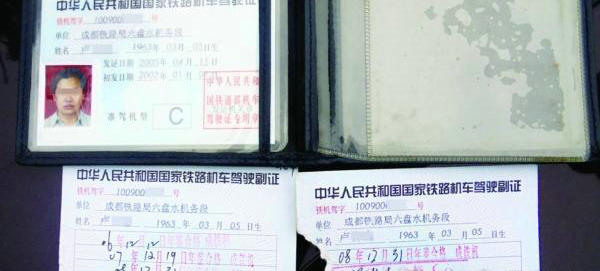 中华人民共和国国家铁路机车驾驶证
铁机驾字 100900 号
单位 成都铁路局六盘水机务段
姓名 卢 1963年03月05日生
发证日期
初发日期 2002
准驾机型 C
中华人民共和
国铁道部机车
驾驶证专用章
中华人民共和国国家铁路机车驾驶副证
铁机驾字 100900 号
单位 成都铁路局六盘水机务段
姓名 卢 1963年03月05日生
06年12月12日年審合格 成铁机
07年12月19日年審合格 成铁机
中华人民共和国国家铁路机车驾驶副证
铁机驾字 100900 号
单位 成都铁路局六盘水机务段
姓名 卢 1963年03月05日生
08年12月31日年審合格 成铁机